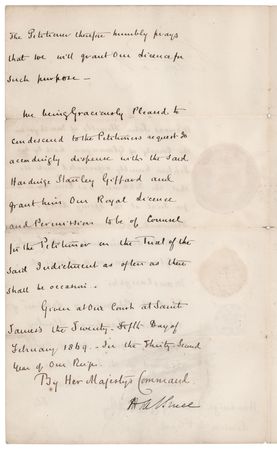 The Petitioner therefore humbly prays
that we will grant Our Licence for
such purpose —
We being Graciously Pleased to
condescend to the Petitioners request Do
accordingly dispense with the said
Hardinge Stanley Giffard and
grant him Our Royal Licence
and Permission to be of Counsel
for the Petitioner on the Trial of the
said Indictment as often as there
shall be occasion.
Given at Our Court at Saint
James's the Twenty-fifth Day of
February 1869 - In the Thirty Second
Year of Our Reign.
By Her Majesty's Command
H A Bruce